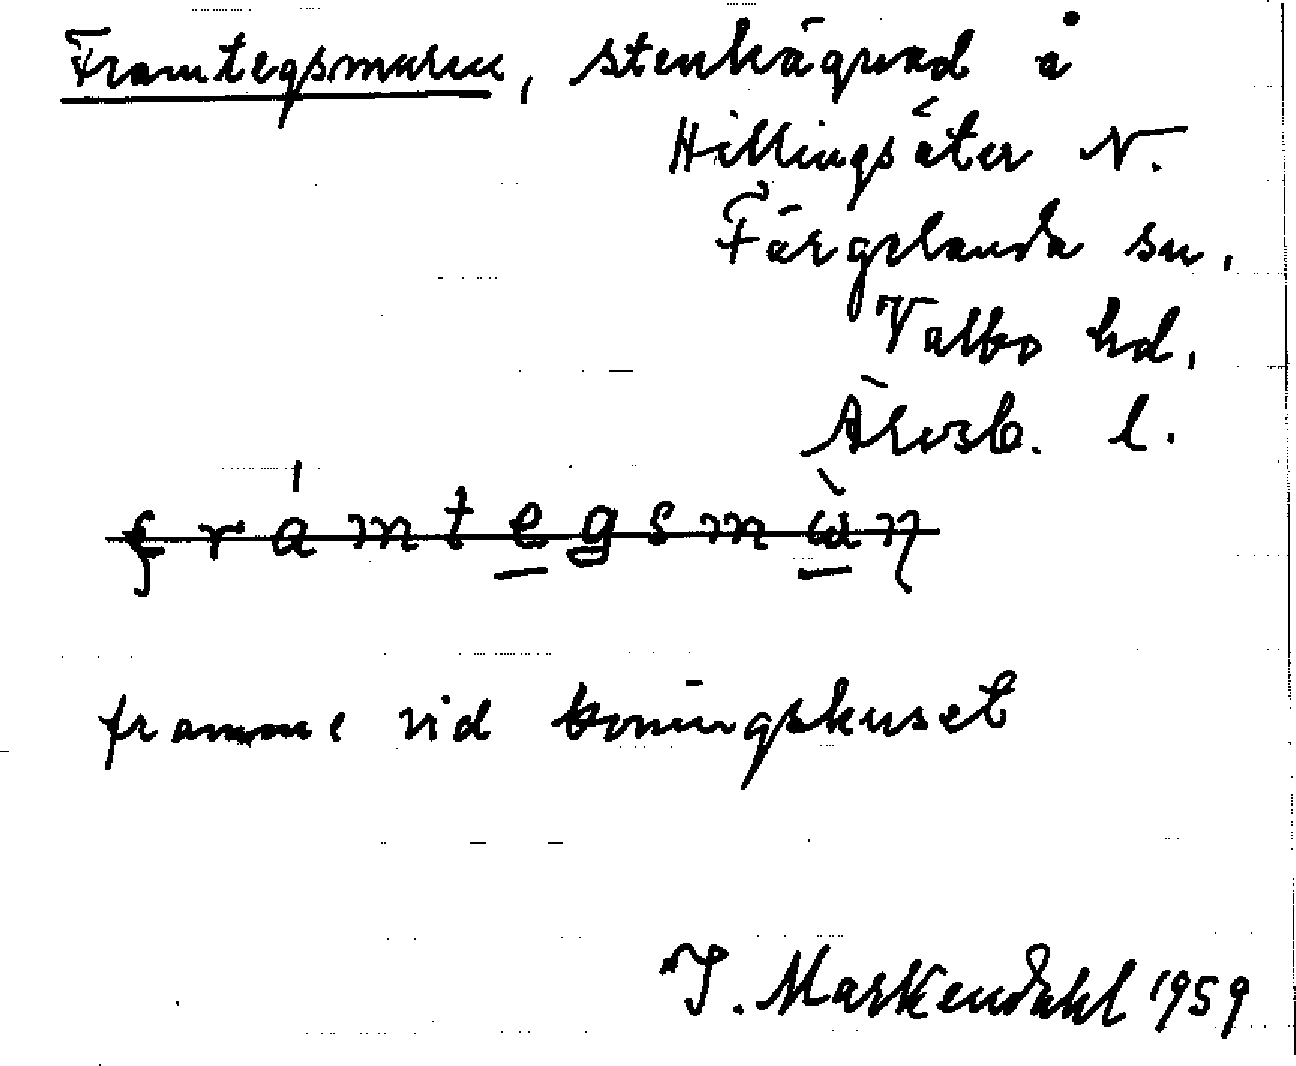 Framtegsmuren, stenhägnad å
Hillingsäter N.
Färgelanda sn.
Valbo hd.
Älvsb. l.
framme vid boningshuset
J. Markendahl 1959